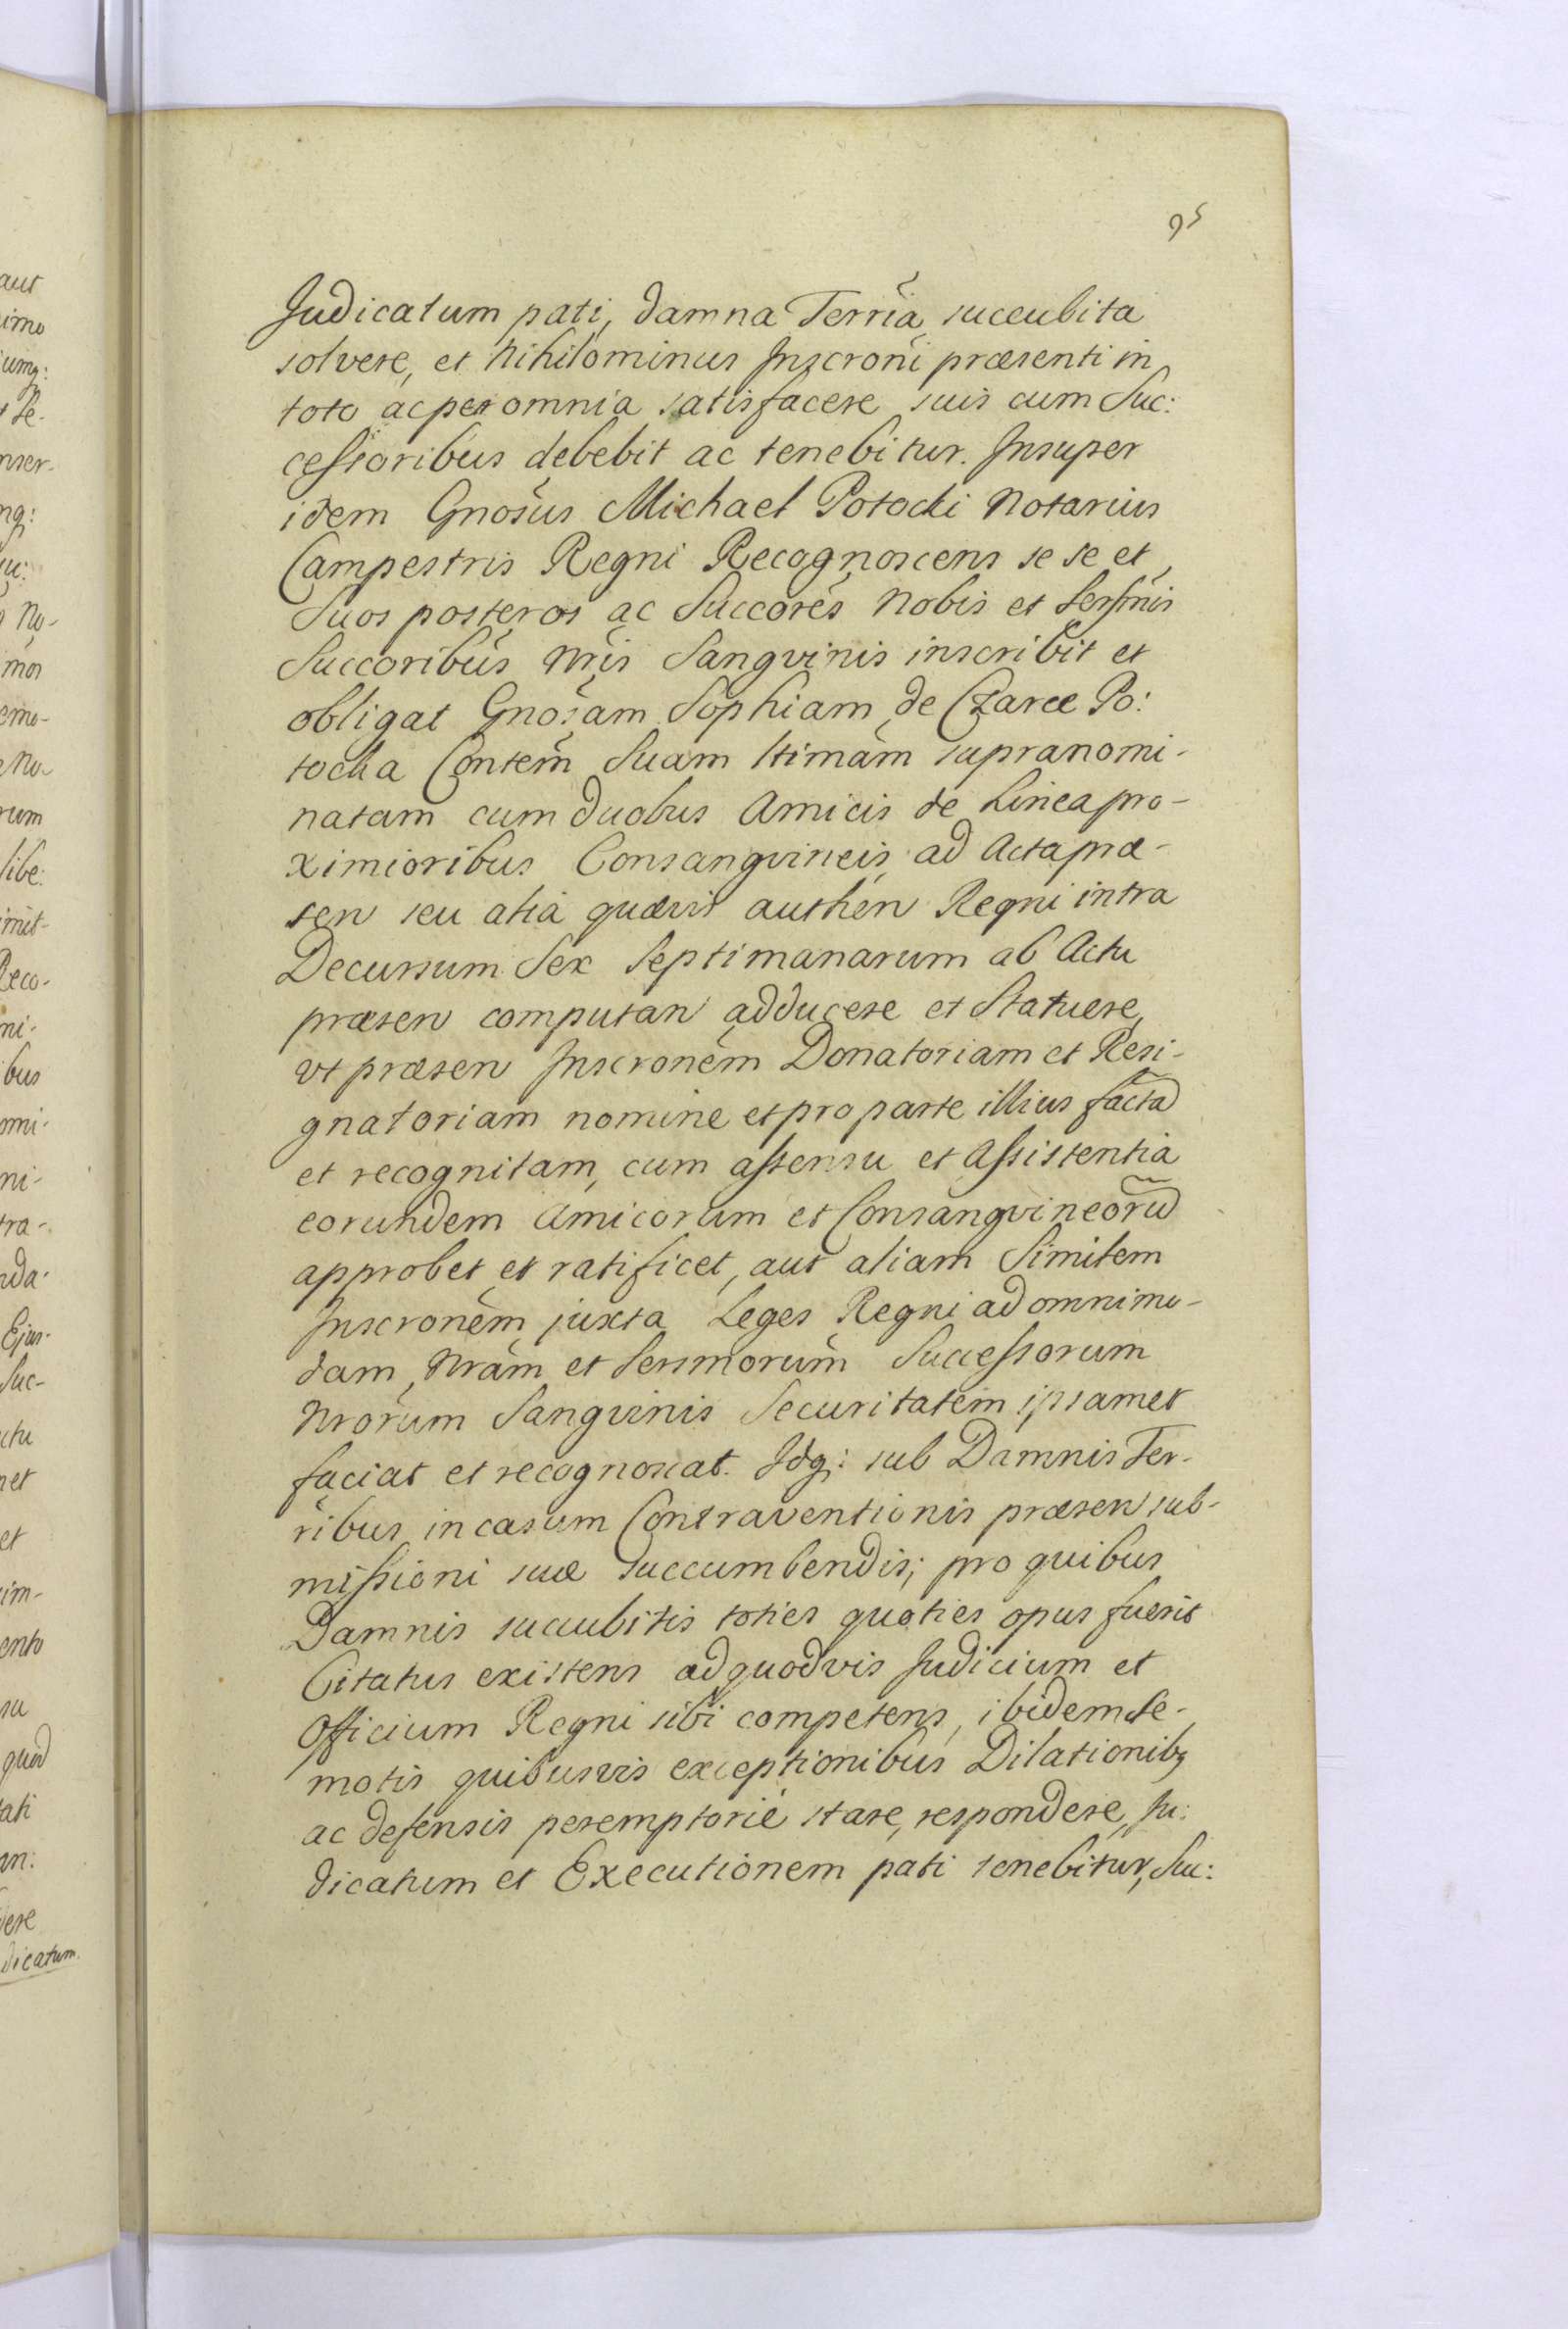 95
Judicatum pati, damna Terria succubita
solvere, et Nihilominus Inscroni præsenti in
toto ac per omnia satisfacere suis cum Suc:
cessoribus debebit ac tenebitur. Insuper
idem Gnosus Michael Potocki Notarius
Campestris Regni Recognoscens se se et
Suos posteros ac Succores Nobis et Sersmis
Succoribus Nris Sangvinis inscribit et
obligat Gnosam Sophiam de Czarce Po:
tocka Contem Suam ltimam supranomi-
natam cum duobus Amicis de Linea pro-
ximioribus Consangvineis, ad Acta præ-
sen seu alia quævis authen Regni intra
Decursum Sex Septimanarum ab Actu
præsen computan adducere et Statuere,
vt præsen Inscronem Donatoriam et Resi-
gnatoriam nomine et pro parte illius facta
et recognitam, cum assensu et Assistentia
eorundem Amicorum et Consangvineoru
approbet et ratificet, aut aliam Similem
Inscronem juxta Leges Regni ad omnimo-
dam Nram et Sersmorum Successorum
Nrorum Sangvinis Securitatem ipsamet
faciat et recognoscat. Idq: sub Damnis Ter-
ribus in casum Contraventionis præsen sub-
missioni suæ succumbendis; pro quibus
Damnis succubitis toties quoties opus fuerit
Citatus existens ad quodvis Judicium et
Officium Regni sibi competens, ibidem Se-
motis quibusvis exceptionibus Dilationibq
ac defensis peremptorie stare, respondere, Ju:
dicatum et Executionem pati tenebitur, Suc:
aut
imo
umq:
nser-
No-
mos
Reco-
mi-
bus
omi-
ni-
tra-
nda-
Ejus-
Suc-
ctu
net
et
ento
quod
an:
dicatum.